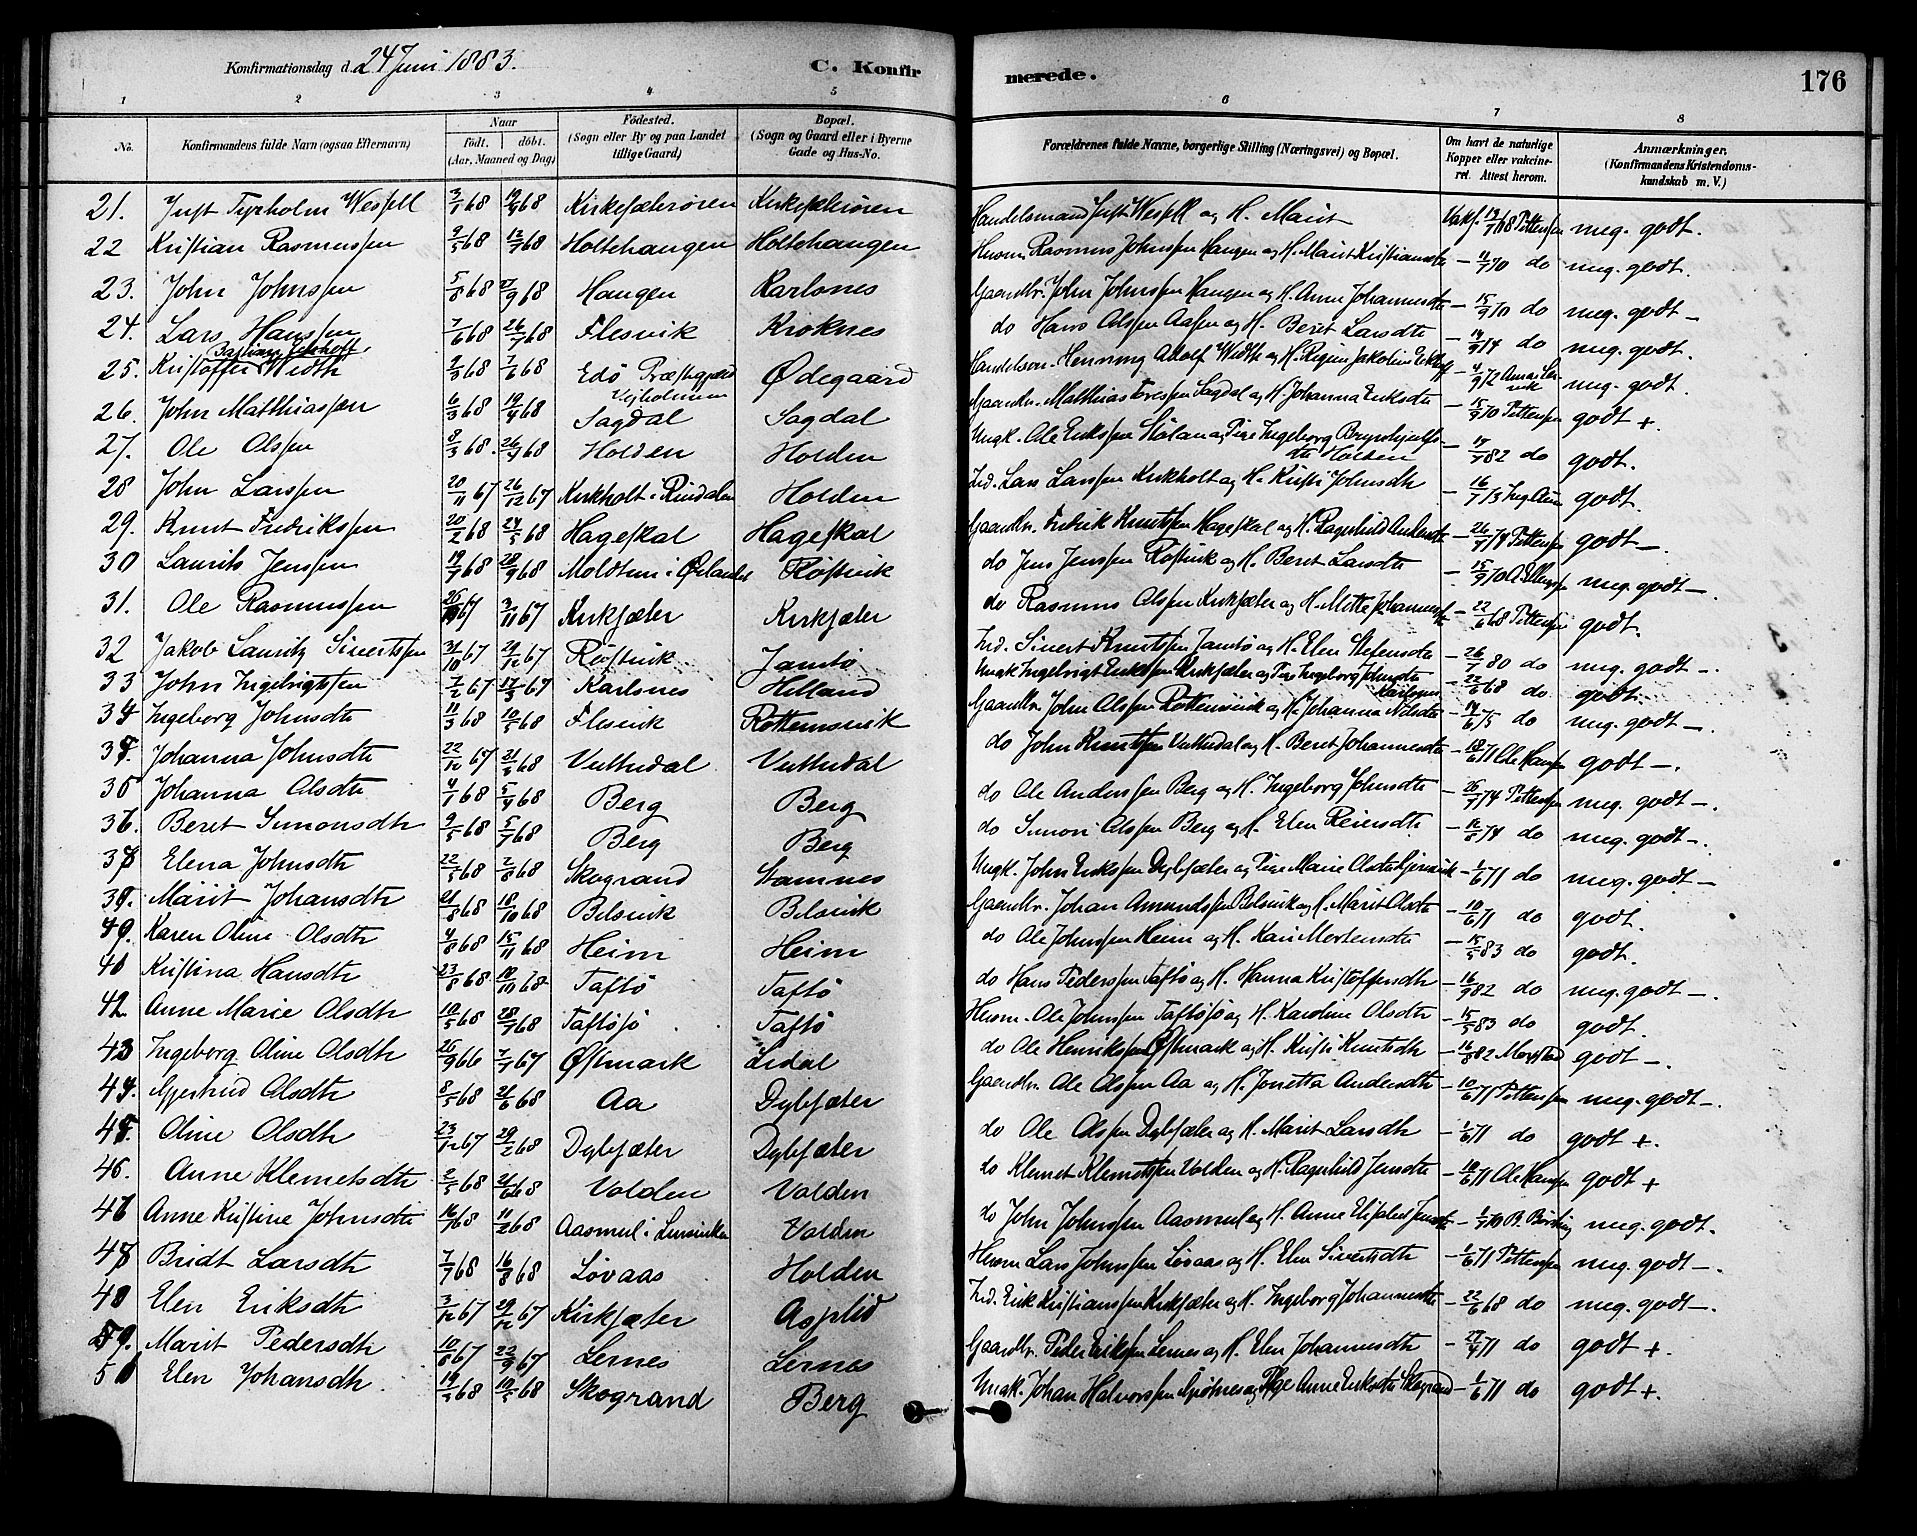 Konfirmationsdag d. 24 Juni 1883. C. Konfirmerede. 176
1 2 3 4 5 6 7 8
No. Konfirmandens fulde Navn (ogsaa Efternavn) Naar født. døbt. (Aar, Maaned og Dag) Fødested. (Sogn eller By og paa Landet tillige Gaard) Bopæl. (Sogn og Gaard eller i Byerne Gade og Hus-No. Forældrenes fulde Navne, borgerlige Stilling (Næringsvei) og Bopæl. Om havt de naturlige Kopper eller vakcineret. Attest herom. Anmærkninger. (Konfirmandens Kristendomskundskab m. V.)
21. Just Tyrholm Wessell 3/1 68 19/4 68 Kirkesæterøren Kirkesæterøren Handelsmand Just Wessell og H. Marit meg. godt.
22 Kristian Rasmussen 9/5 68 12/7 68 Holtehaugen Holtehaugen Husm. Rasmus Johnssen Haugen og H. Marit Kristiansdtr – 11/7 70 do meg. godt.
23. John Johnssen 5/8 68 27/9 68 Haugen Karlsnes Gaardbr. John Johnssen Haugen og H. Anne Johannesdtr – 15/9 70 do meg. godt –
24. Lars Hanssen 7/6 68 26/7 68 Flesvik Kroknes do Hans Olssen Aasen og H. Beret Larsdtr – 14/9 74 do meg. godt.
25. Kristoffer Width 2/3 68 7/6 68 Edö Præstegjæld Ødegaard Handelsm. Henning Adolf Width og H. Regine Jakobine – 4/9 72 meg. godt.
26. John Matthiassen 6/3 68 19/4 68 Sagdal Sagdal Gaardbr. Matthias Toressen Sagdal og H. Johanna Eriksdtr – 15/9 70 Pettersen godt +.
27. Ole Olssen 8/3 68. 26/4 68 Holden Holden Ungk. Ole Erikssen Stölan og Pige Ingeborg Brynhjulfsdtr Holden – 17/7 82 do godt.
28 John Larssen 20/11 67 26/12 67 Kirkholt i Rindalen Holden Ind. Lars Larssen Kirkholt og H. Kristi Johnsdtr – 16/7 73 godt.
29. Knut Fredrikssen 20/2 68 24/5 68 Hageskal Hageskal Gaardbr. Fredrik Knutssen Hageskal og H. Ragnhild Andersdtr – 26/7 74 Pettersen godt –.
30 Laurits Jenssen 19/7 68 20/9 68 Moldtun i Ørlandet Röstvik do Jens Jenssen Röstvik og H. Beret Larsdtr – 15/9 70 meg. godt –.
31. Ole Rasmussen 67 3/11 67 Kirksæter Kirksæter do Rasmus Olssen Kirksæter og H. Mette Johannesdtr – 22/6 68 Pettersen godt.
32 Jakob Lauritz Sivertssen 31/10 67 29/12 67 Röstvik Jamtö Ind. Sivert Knutssen Jamtö og H. Elen Stefensdtr – 26/7 80 do meg. godt –.
33 John Ingebrigtssen 7/2 67 17/3 67 Karlsnes Helland Ungk. Ingebrigt Erikssen Kirksæter og Pige Ingeborg Johnsdtr Karlsnes – 22/6 68 do godt.
34 Ingeborg Johnsdtr 11/3 68 10/5 68 Flesvik Rottemsvik Gaardbr. John Olssen Rottemsvik og H. Johanna Nilsdtr – 14/6 75 do meg. godt –.
35. Johanna Johnsdtr 22/12 67 21/3 68 Vuttudal Vuttudal do John Knutssen Vuttudal og H. Beret Johannesdtr – 18/6 71 Ole Hanssen godt –.
35 Johanna Olsdtr 4/1 68 5/4 68 Berg Berg do Ole Anderssen Berg og H. Ingeborg Johnsdtr – 26/7 74 Pettersen meg. godt –.
36. Beret Simonsdtr 9/5 68 5/7 68 Berg Berg do Simon Olssen Berg og H. Elen Reiersdtr do meg. godt.
37 Elena Johnsdtr 22/5 68 2/8 68 Skogrand Stamnes Ungk. John Erikssen Dybsæter og Pige Marie Olsdtr – 1/6 71 do meg. godt –
39. Marit Johansdtr 21/8 68 18/10 68 Belsvik Belsvik Gaardbr. Johan Amundssen Belsvik og H. Marit Olsdtr – 10/6 71 do godt.
40. Karen Oline Olsdtr 4/8 68 15/11 68 Heim Heim do Ole Johnssen Heim og H. Kari Mortensdtr – 15/5 83 do godt.
41 Kristina Hansdtr 23/8 68 10/10 68 Taftö Taftö do Hans Pederssen Taftö og H. Hanna Kristoffersdtr – 16/9 82 do meg. godt –.
42. Anne Marie Olsdtr 10/5 68 28/7 68 Taftösjö Taftö Husm. Ole Johnssen Taftösjö og H. Karoline Olsdtr – 15/5 83 do godt.
43 Ingeborg Oline Olsdtr 26/9 66 7/7 67 Østmark Lidal do Ole Henrikssen Østmark og H. Kristi Knutsdtr – 16/8 82 godt –.
44. Gjertrud Olsdtr 8/5 68 21/6 68 Aa Dybsæter Gaardbr. Ole Olssen Aa og H. Jonetta Andersdtr – 10/6 71 Pettersen meg. godt –.
45. Oline Olsdtr 23/12 67 29/2 68 Dybsæter Dybsæter do Ole Olssen Dybsæter og H. Marit Larsdtr – 1/6 71 do godt +.
46. Anne Klemetsdtr 2/5 68 21/6 68 Volden Volden do Klemet Klemetssen Volden og H. Ragnhild Jensdtr – 10/6 71 Ole Hanssen godt +
46 Anne Kristine Johnsdtr 68 11/2 68 Aasmul i Lensviken Volden do John Johnssen Aasmul og H. Anne Elisabet Jensdtr – 1/7 70 meg. godt.
47 Bridt Larsdtr 7/7 68 16/8 68 Løvaas Holden Husm Lars Johnssen Løvaas og H. Elen Sivertsdtr – 1/6 71 Pettersen meg. godt –.
48 Elen Eriksdtr 3/12 67 29/12 67 Kirksæter Asplid Ind. Erik Kristianssen Kirksæter og H. Ingeborg Johannesdtr – 22/6 68 do meg. godt –.
49. Marit Pedersdtr 10/8 67 22/9 67 Lernes Lernes Gaardbr. Peder Erikssen Lernes og H. Elen Johannesdtr do godt +.
50 Elen Johansdtr. 19/3 68 10/5 68 Skogrand Berg Ungk. Johan Halvorssen og Pige Anne Eriksdtr Skogrand – 1/6 71 do godt +.